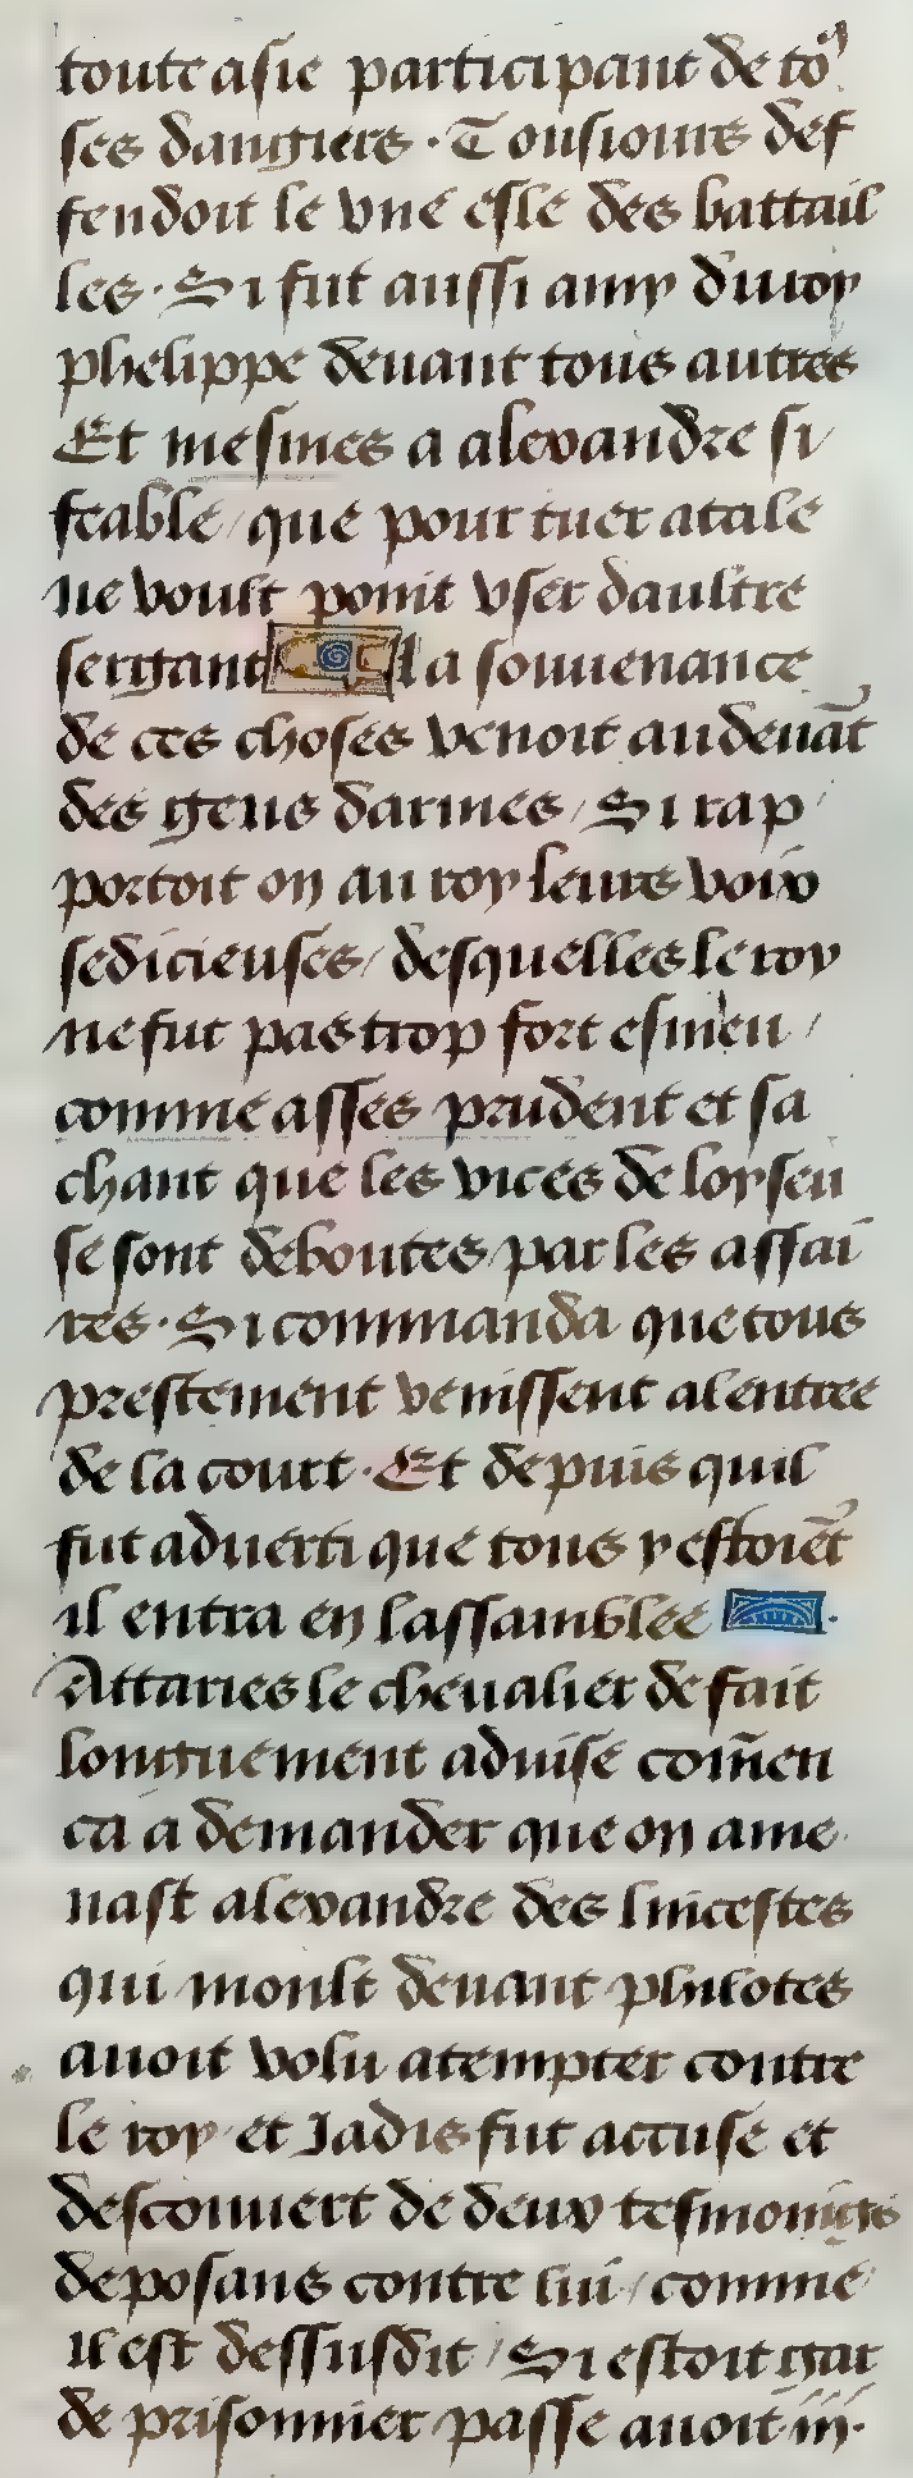 toute asie participant de to9
ses dangiers · Tousiours def
fendoit le vne esle des battail
les · Si fut aussi amy du roy
phelippe deuant tous autres
Et mesmes a alexandre si
feable / que pour tuer atale
ne voult point vser daultre
sergant la souuenance
de ces choses venoit au deuāt
des gens darmes / Si rap
portoit on au roy leurs voix
sedicieuses / desquelles le roy
ne fut pas trop fort esmeu /
comme asses prudent et sa
chant que les vices de loyseu
se sont deboutes par les affai
res · Si commanda que tous
prestement venissent a lentree
de la court · Et depuis quil
fut aduerti que tous y estoiēt
il entra en lassamblee ·
Attaries le cheualier de fait
longuement aduise com̄en
ca a demander que on ame
nast alexandre des lincestes
qui moult deuant philotes
auoit volu atempter contre
le roy et Jadis fut accuse et
descouuert de deux tesmoings
deposans contre lui / comme
il est dessusdit / Si estoit gar
de prisonnier passe auoit iij ·